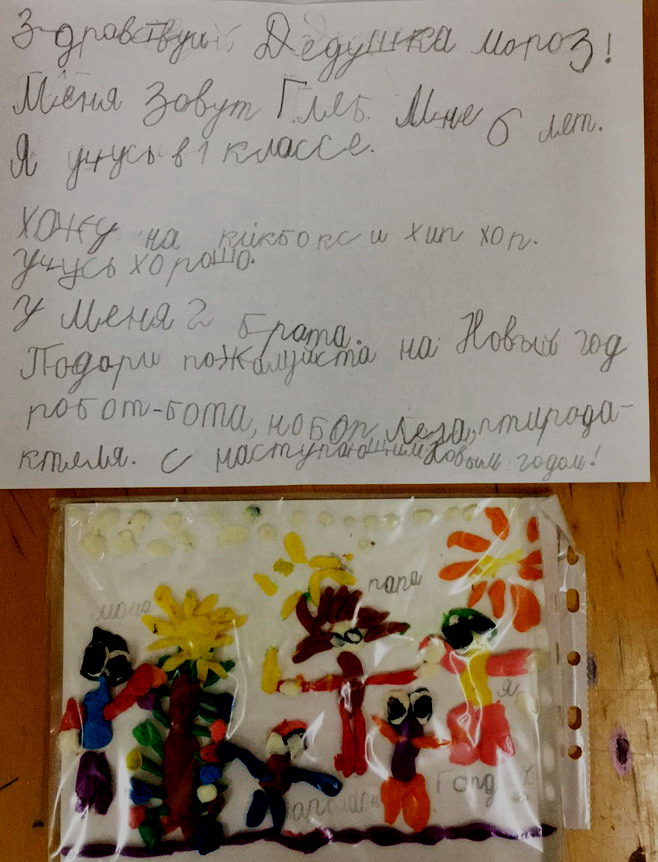 Здравствуй Дедушка мороз!
Меня Зовут Глеб. Мне 6 лет.
Я учусь в 1 классе.
Хожу на кикбокс и хип хоп.
Учусь хорошо.
У меня 2 брата.
Подари пожалуйста на Новый год
робот-бота, нобор Лега, птирода-
ктеля. С наступающим Новым годом!
папа
мама
я